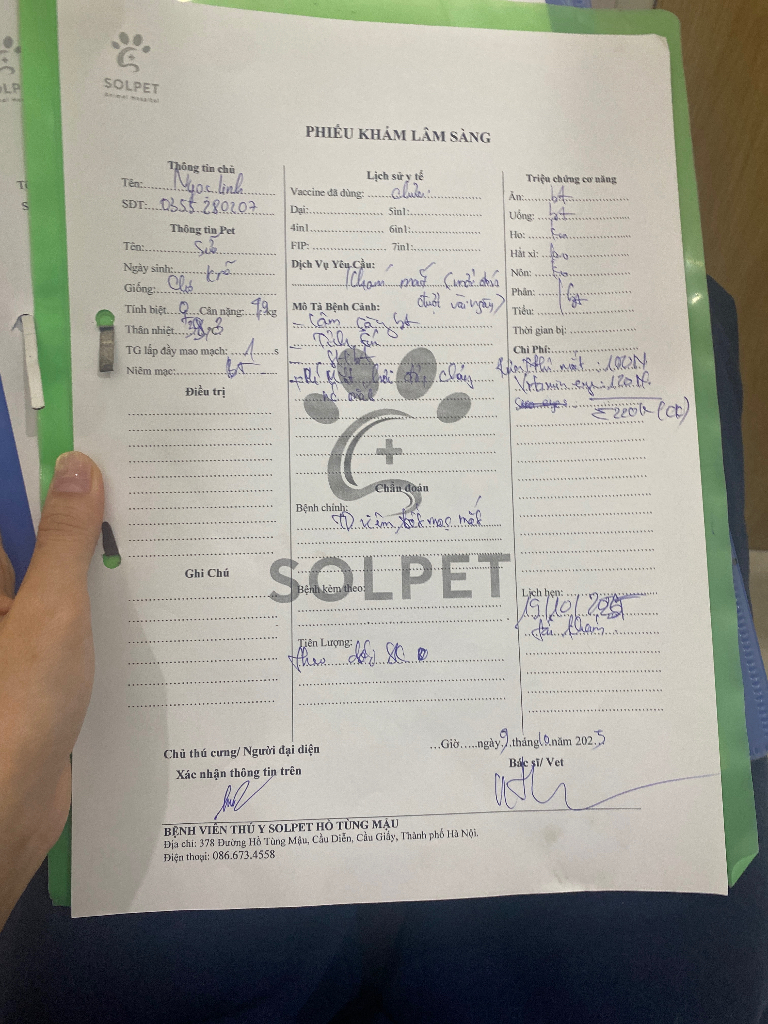 SOLPET
Animal Hospital
PHIẾU KHÁM LÂM SÀNG
Thông tin chủ
Tên: Ngọc Linh
SĐT: 0355 280207
Thông tin Pet
Tên: Sữa
Ngày sinh:
Giống: Chó
Tính biệt ♀ Cân nặng: kg
Thân nhiệt: 38,3
TG lấp đầy mao mạch: 1 s
Niêm mạc: bt
Điều trị
Ghi Chú
Lịch sử y tế
Vaccine đã dùng: chưa.
Dại: 5in1:
4in1 6in1:
FIP: 7in1:
Dịch Vụ Yêu Cầu:
khám mắt (nước
đuôi vài ngày)
Mô Tả Bệnh Cảnh:
- Lâm sàng bt
- Tỉnh
chảy
Chẩn đoán
Bệnh chính:
viêm kết mạc mắt
SOLPET
Bệnh kèm theo:
Tiên Lượng:
theo dõi SK
Triệu chứng cơ năng
Ăn: bt
Uống: bt
Ho: ko
Hắt xì: ko
Nôn: ko
Phân: bt
Tiểu:
Thời gian bị:
Chi Phí:
mắt: 100K
Vitamin eye: 120K
Σ 220k (CK)
Lịch hẹn:
19/10/2025
tái khám.
…Giờ…..ngày 9 tháng 10 năm 2025
Chủ thú cưng/ Người đại diện
Xác nhận thông tin trên
Bác sĩ/ Vet
BỆNH VIỆN THÚ Y SOLPET HỒ TÙNG MẬU
Địa chỉ: 378 Đường Hồ Tùng Mậu, Cầu Diễn, Cầu Giấy, Thành phố Hà Nội.
Điện thoại: 086.673.4558